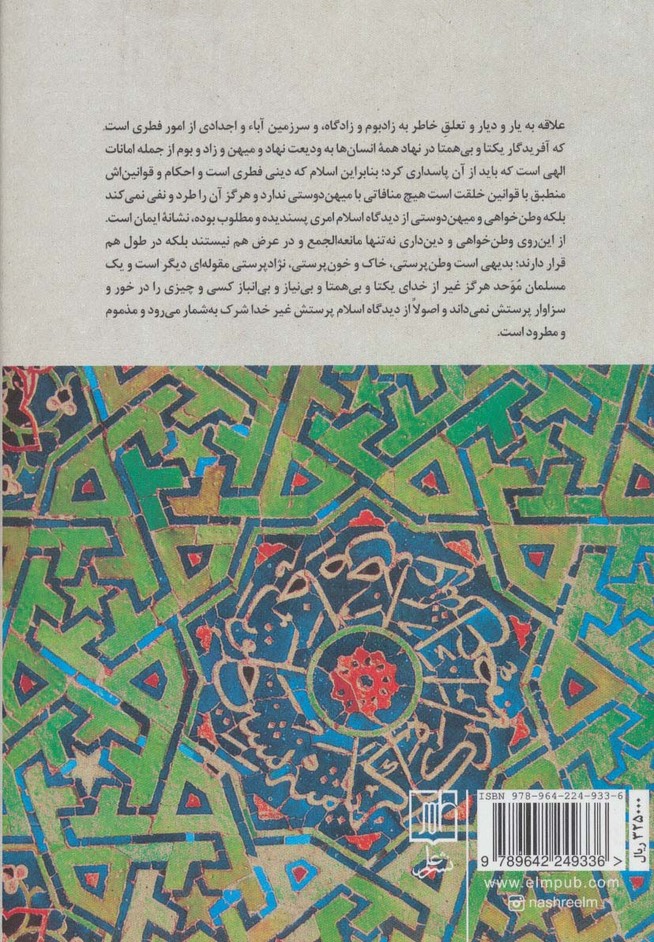 علاقه به یار و دیار و تعلقِ خاطر به زادبوم و زادگاه، و سرزمین آباء و اجدادی از امور فطری است.
که آفریدگار یکتا و بی‌همتا در نهاد همهٔ انسان‌ها به ودیعت نهاد و میهن و زاد و بوم از جمله امانات
الهی است که باید از آن پاسداری کرد؛ بنابراین اسلام که دینی فطری است و احکام و قوانین‌اش
منطبق با قوانین خلقت است هیچ منافاتی با میهن‌دوستی ندارد و هرگز آن را طرد و نفی نمی‌کند
بلکه وطن‌خواهی و میهن‌دوستی از دیدگاه اسلام امری پسندیده و مطلوب بوده، نشانهٔ ایمان است.
از این‌روی وطن‌خواهی و دین‌داری نه‌تنها مانعه‌الجمع و در عرض هم نیستند بلکه در طول هم
قرار دارند؛ بدیهی است وطن‌پرستی، خاک و خون‌پرستی، نژادپرستی مقوله‌ای دیگر است و یک
مسلمان مُوَحد هرگز غیر از خدای یکتا و بی‌همتا و بی‌نیاز و بی‌انباز کسی و چیزی را در خور و
سزاوار پرستش نمی‌داند و اصولاً از دیدگاه اسلام پرستش غیر خدا شرک به‌شمار می‌رود و مذموم
و مطرود است.
ISBN 978-964-224-933-6
9 789642 249336 >
۳۲۵۰۰۰ ریال
نشر علم
www.elmpub.com
nashreelm